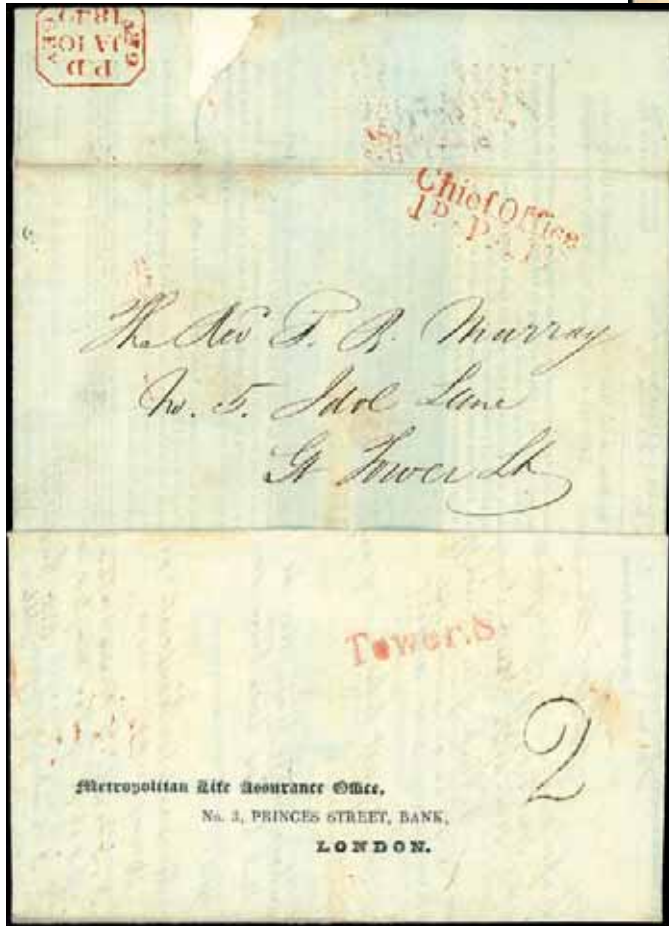 P D
JA 10
1840
Chief Office
1D. PAID
The Rev T. B. Murray
No. 5. Idol Lane
Gt Tower St
Tower.S
2
Metropolitan Life Assurance Office,
No. 3, PRINCES STREET, BANK,
LONDON.